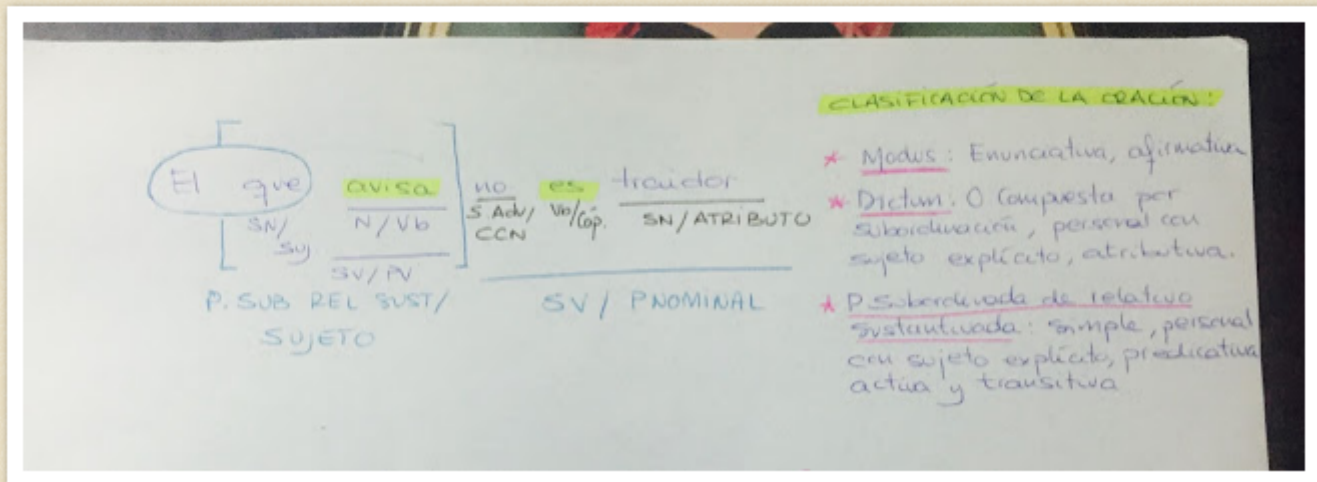 El que avisa no es traidor
SN/ N/Vb S.Adv/ Vb/Cóp. SN/ATRIBUTO
Suj CCN
SV/PV
P. SUB REL SUST/ SV / PNOMINAL
SUJETO
CLASIFICACIÓN DE LA ORACIÓN:
* Modus: Enunciativa, afirmativa
* Dictum: O Compuesta por
subordinación, personal con
sujeto explícito, atributiva.
* P. Subordinada de relativo
sustantivada: simple, personal
con sujeto explícito, predicativa
activa y transitiva